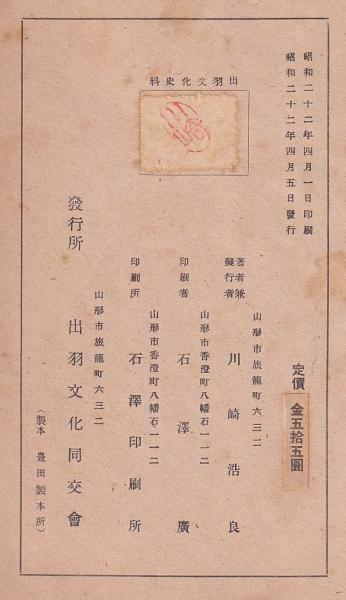 昭和二十二年四月一日印刷
昭和二十二年四月五日發行
定價 金五拾五圓
出羽文化史料
山形市旅籠町六三二
著者兼發行者 川崎浩良
山形市香澄町八幡石一一二
印刷者 石澤廣
山形市香澄町八幡石一一二
印刷所 石澤印刷所
山形市旅籠町六三二
發行所 出羽文化同交會
(製本 豊田製本所)